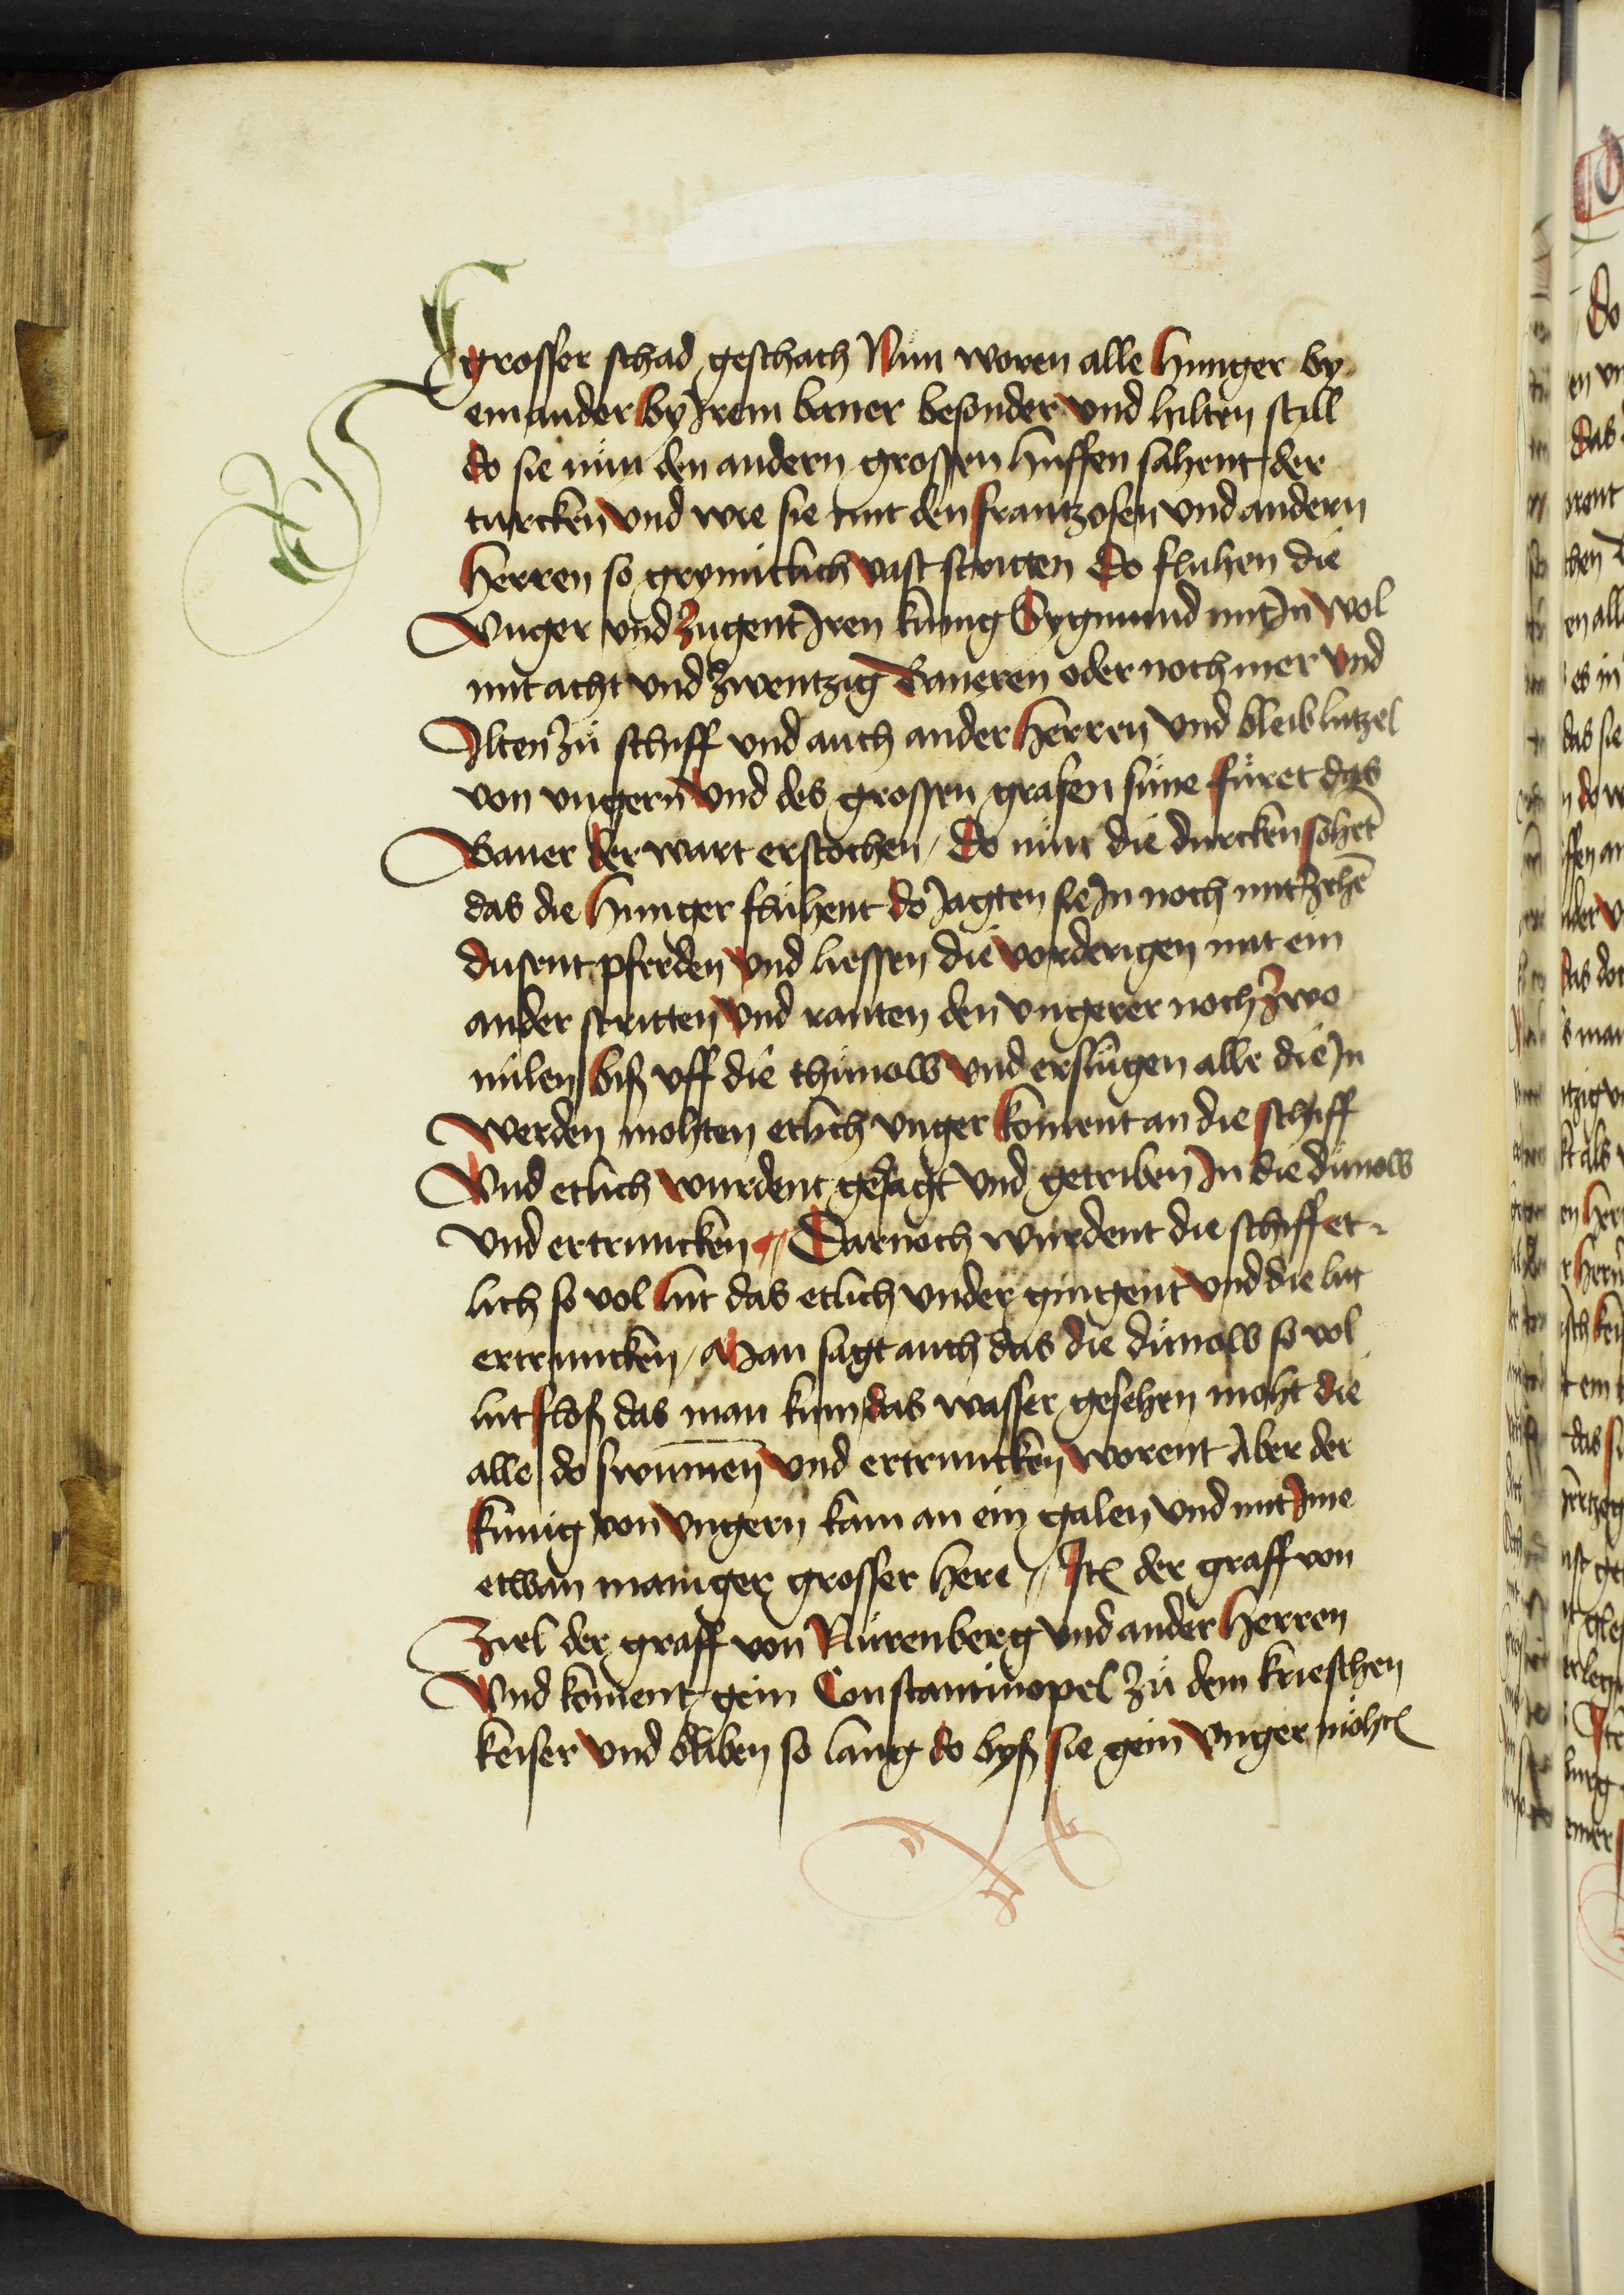 grosser schad geschach Nün woren alle hunger by
einander by Irem baner besonder und hilten still
do sie nün den andern grossen huffen sahent der
turcken und wie sie mit den frantzosen und andern
herren so grymiclich vast stritten Do fluhen die
Vnger und zugent Iren künig Sygmund mit In wol
mit acht und zwentzig baneren oder noch mer und
Ilten zů schiff und auch ander herren Vnd bleib lutzel
von vngern Vnd des grossen grafen süne füret das
Baner der wart erstochen / Do nün die durcken sohet
das die hunger fluhent do Jagten sie In noch mit zehē
dusent pferden und liessen die vorderigen mit ein
ander stritten Vnd ranten den vngerer noch zwo
milen biß vff die thünow und erslügen alle die In
Werden mohten etlich vnger koment an die schiff
Vnd etlich wurdent gesagt und getriben In die dünow
Vnd ertruncken // Darnoch wurdent die schiff et-
lich so vol lüt das etlich vnder gingent Vnd die lüt
ertruncken / Man sagt auch das die dünow so vol
lüt floß das man kum das wasser gesehen moht die
alle do swümen Vnd ertruncken worent Aber der
künig von vngern kam an ein galen Vnd mit Ime
etwan maniger grosser here // Itē der graff von
Ziel der graff von Nürenberg Vnd ander herren
Vnd koment gein Constantinopel zů dem krieschen
keiser Vnd bliben so lang do byß sie gein Vnger möhtē